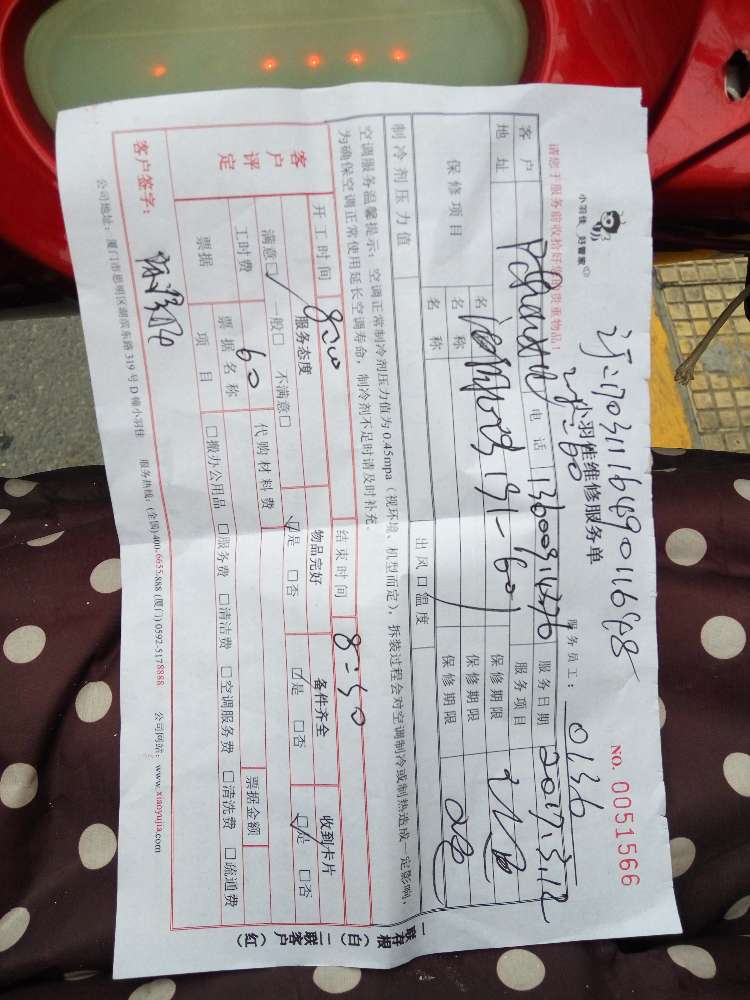 小羽佳 好管家
订:170311164901698
小羽佳维修服务单
NO. 0051566
服务员工: 0136
请您于服务前收拾好您的贵重物品!
客户 电话 服务日期 2017.3.12
地址 131-601 服务项目
保修项目 名称 保修期限
名称 保修期限
名称 保修期限
制冷剂压力值 出风口温度
空调服务温馨提示:空调正常制冷剂压力值为0.45mpa(视环境、机型而定),拆装过程会对空调制冷或制热造成一定影响,
为确保空调正常使用延长空调寿命,制冷剂不足时请及时补充。
开工时间 8:00 结束时间 8:50
客户评定 服务态度 物品完好 备件齐全 收到卡片
满意☑ 一般□ 不满意□ ☑是 □否 ☑是 □否 ☑是 □否
工时费 60 代购材料费 票据金额
票据 票据名称
项目 □搬办公用品 □服务费 □清洁费 □空调服务费 □清洗费 □疏通费
客户签字:
公司地址:厦门市思明区湖滨东路319号D幢小羽佳 服务热线:(全国)400.6655.888 (厦门)0592-5178888 公司网站:www.xiaoyujia.com
一联存根(白) 二联客户(红)